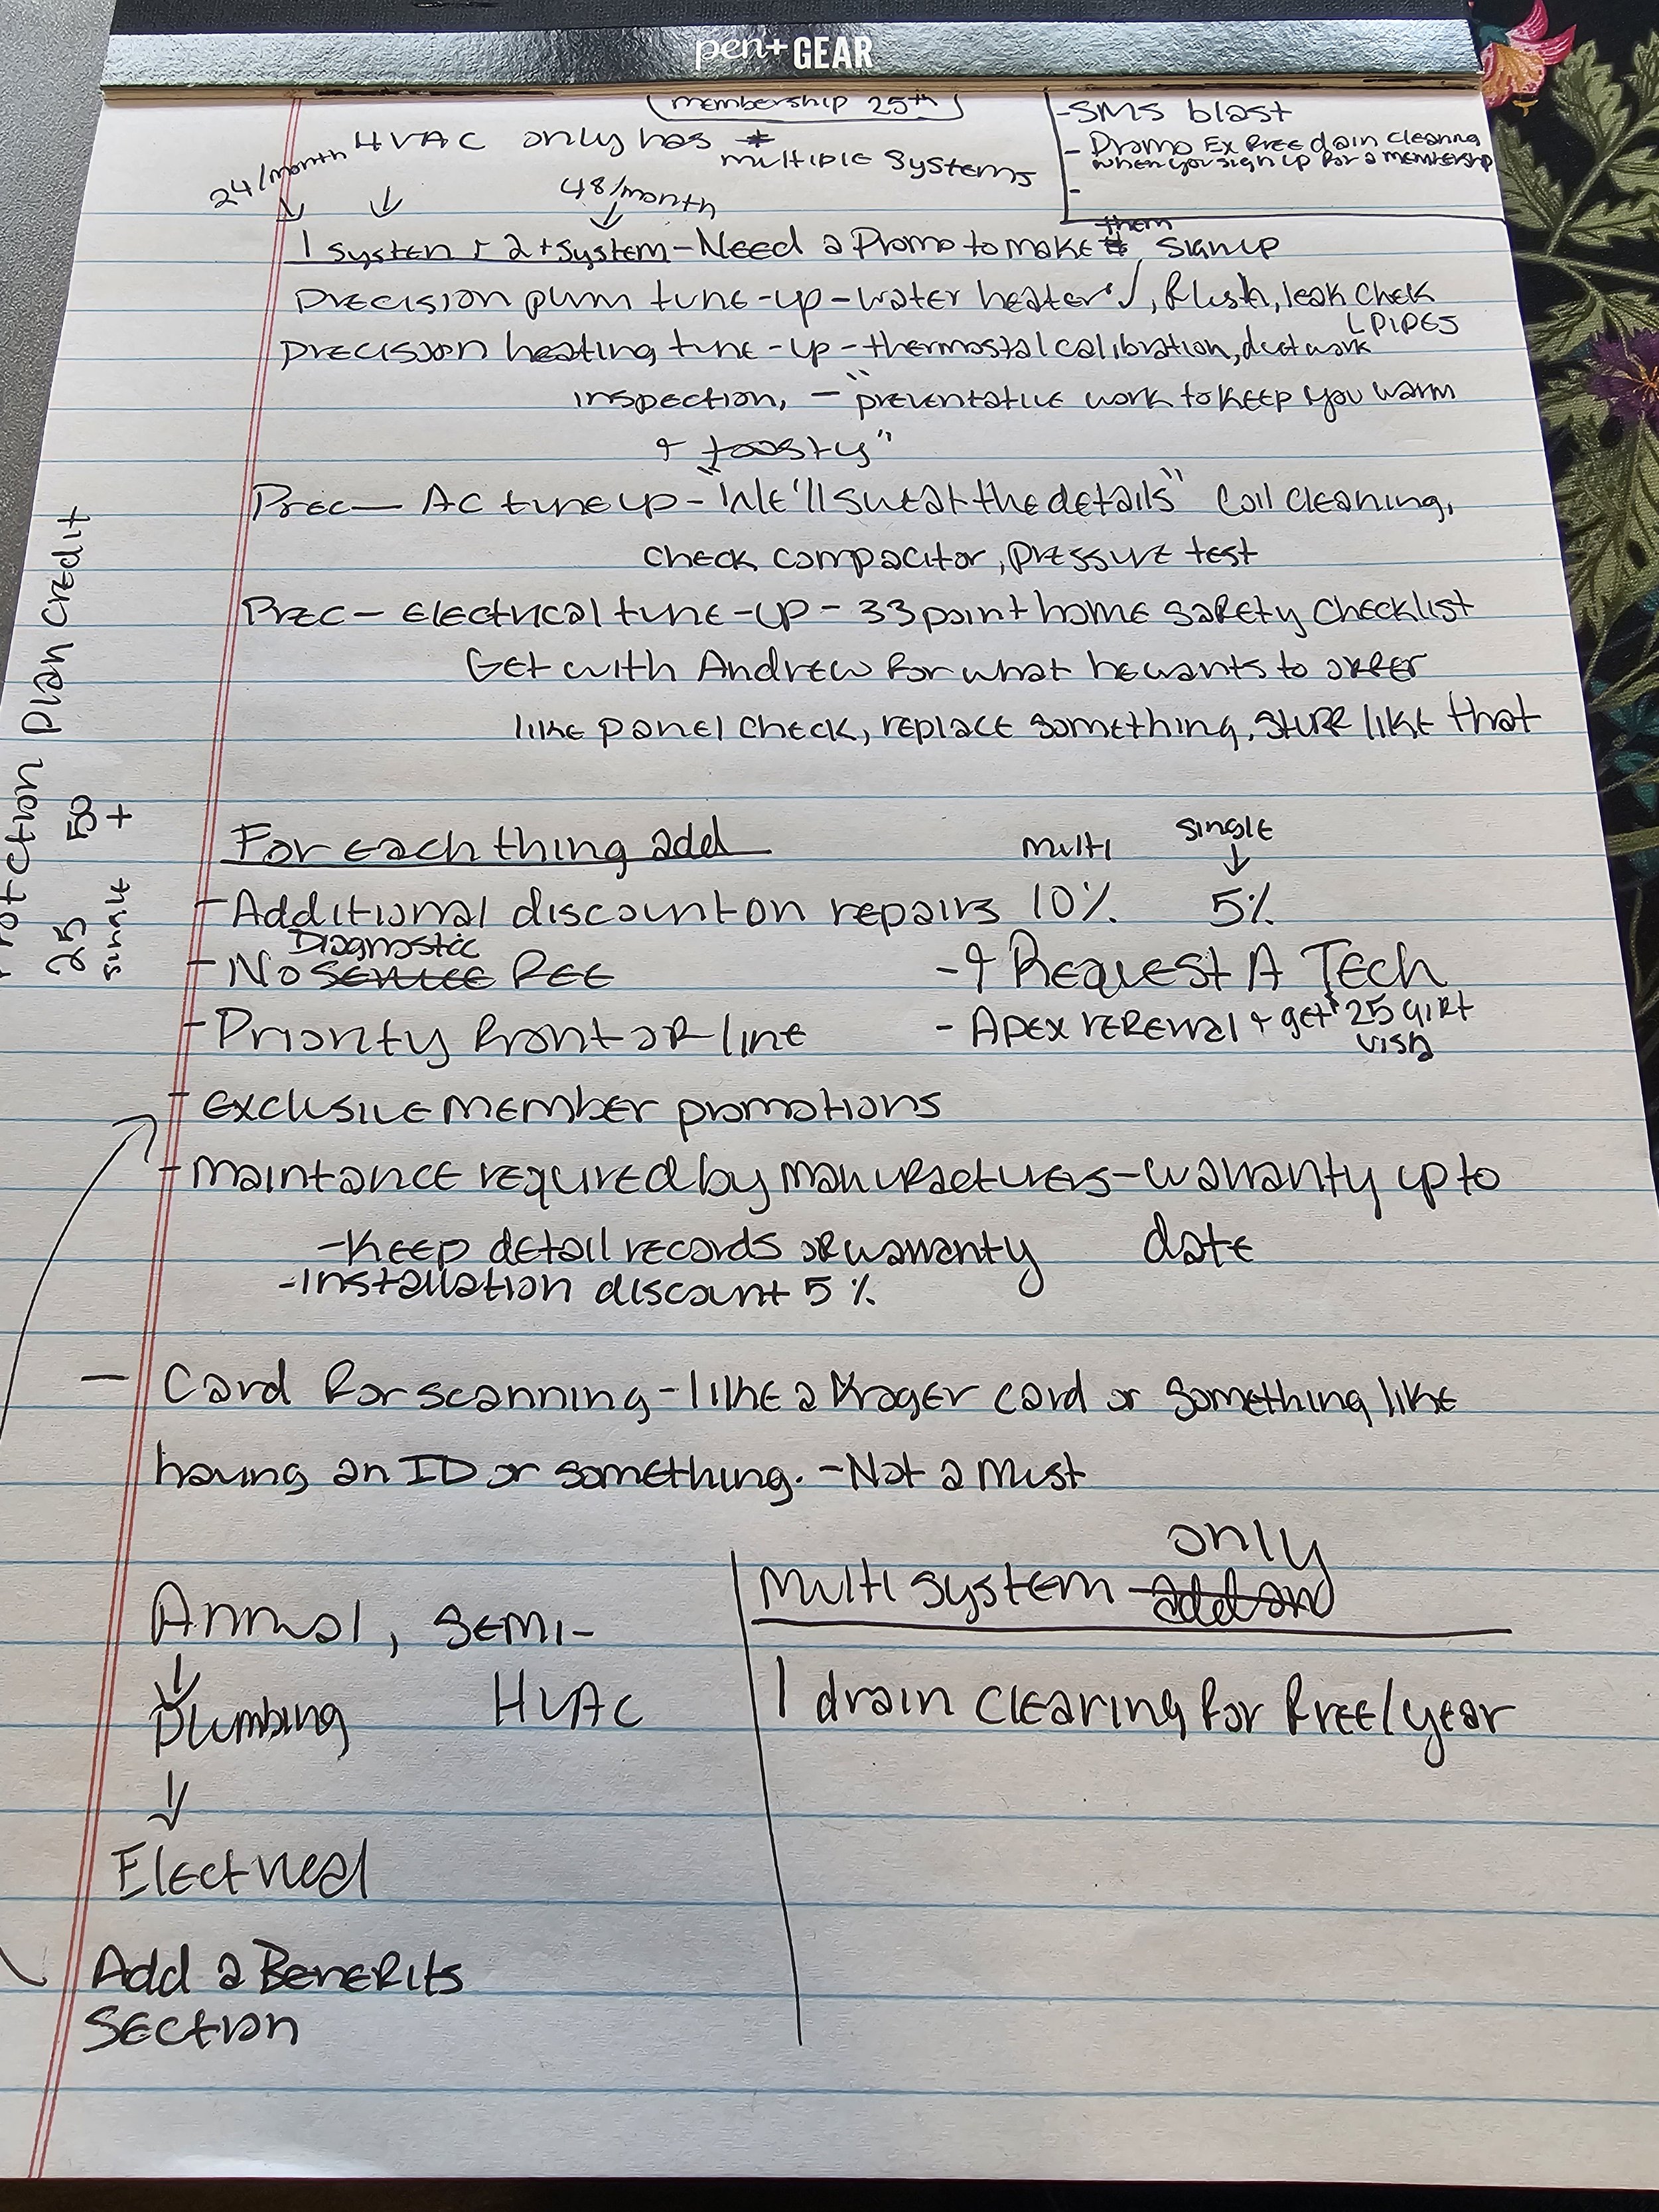 pen+GEAR
membership 25th
-SMS blast
- Promo Ex Free drain cleaning
when you sign up for a membership
-
HVAC only has
multiple systems
24/month
48/month
them
1 system + 2+ system - Need a Promo to make sign up
Precision plum tune-up - water heater ✓, flush, leak chek
L PIPES
Precision heating tune-up - thermostat calibration, ductwork
inspection, - "preventative work to keep you warm
+ toasty"
Prec - AC tune up - "We'll sweat the details" Coil cleaning,
check compacitor, pressure test
Prec - Electrical tune-up - 33 point home safety checklist
Get with Andrew for what he wants to offer
like panel check, replace something, stuff like that
Plan credit
25 50
single +
For each thing add
multi
single
- Additional discount on repairs 10% 5%
Diagnostic
- No Service Fee
- + Request A Tech
- Priority front of line
- Apex renewal + get $25 gift
visa
- exclusive member promotions
- maintance required by manufacturers - warranty up to
date
- Keep detail records of warranty
- installation discount 5%
- Card for scanning - like a Kroger card or something like
having an ID or something. - Not a must
Annual, semi-
Plumbing HVAC
Electrical
only
Multi system add on
1 drain clearing for free/year
Add a Benefits
Section